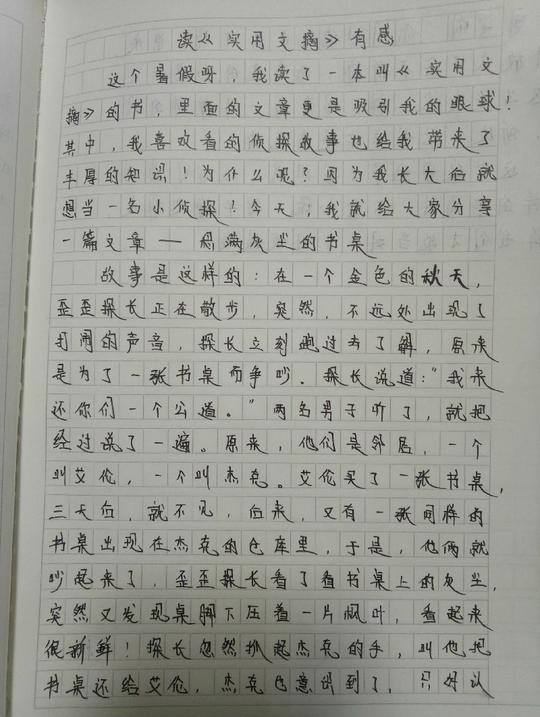 读《实用文摘》有感
这个暑假呀,我读了一本叫《实用文
摘》的书,里面的文章更是吸引我的眼球!
其中,我喜欢看的侦探故事也给我带来了
丰厚的知识!为什么呢?因为我长大后就
想当一名小侦探!今天,我就给大家分享
一篇文章——落满灰尘的书桌
故事是这样的:在一个金色的秋天,
歪歪探长正在散步,突然,不远处出现了
打闹的声音,探长立刻跑过去了解,原来
是为了一张书桌而争吵。探长说道:“我来
还你们一个公道。”两名男子听了,就把
经过说了一遍。原来,他们是邻居,一个
叫艾伦,一个叫杰克。艾伦买了一张书桌,
三天后,就不见,后来,又有一张同样的
书桌出现在杰克的仓库里,于是,他俩就
吵起来了,歪歪探长看了看书桌上的灰尘,
突然又发现桌脚下压着一片枫叶,看起来
很新鲜!探长忽然扒起杰克的手,叫他把
书桌还给艾伦,杰克也意识到了,只好认